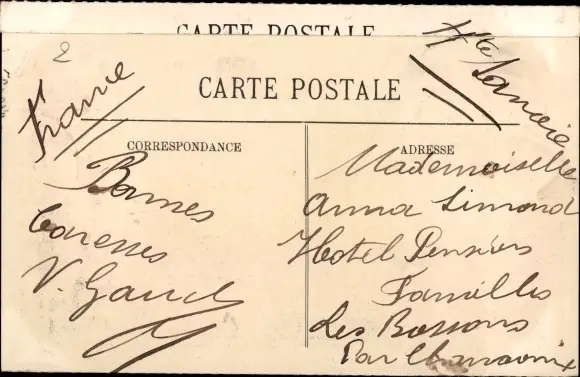 CARTE POSTALE
2
Hte Savoie
CARTE POSTALE
France
CORRESPONDANCE
ADRESSE
Bonnes
Caresses
V. Gaud
Mademoiselle
Anna Simond
Hotel Pensions
Familles
Les Bossons
Par Chamonix